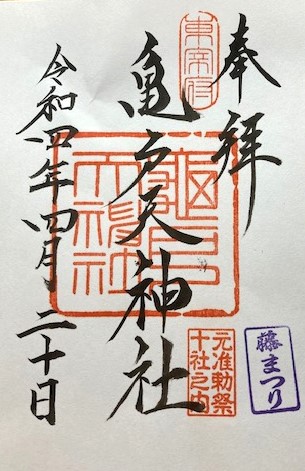 奉拝
東宰府
亀戸天神社
令和四年四月二十日
元准勅祭
十社之内
藤まつり